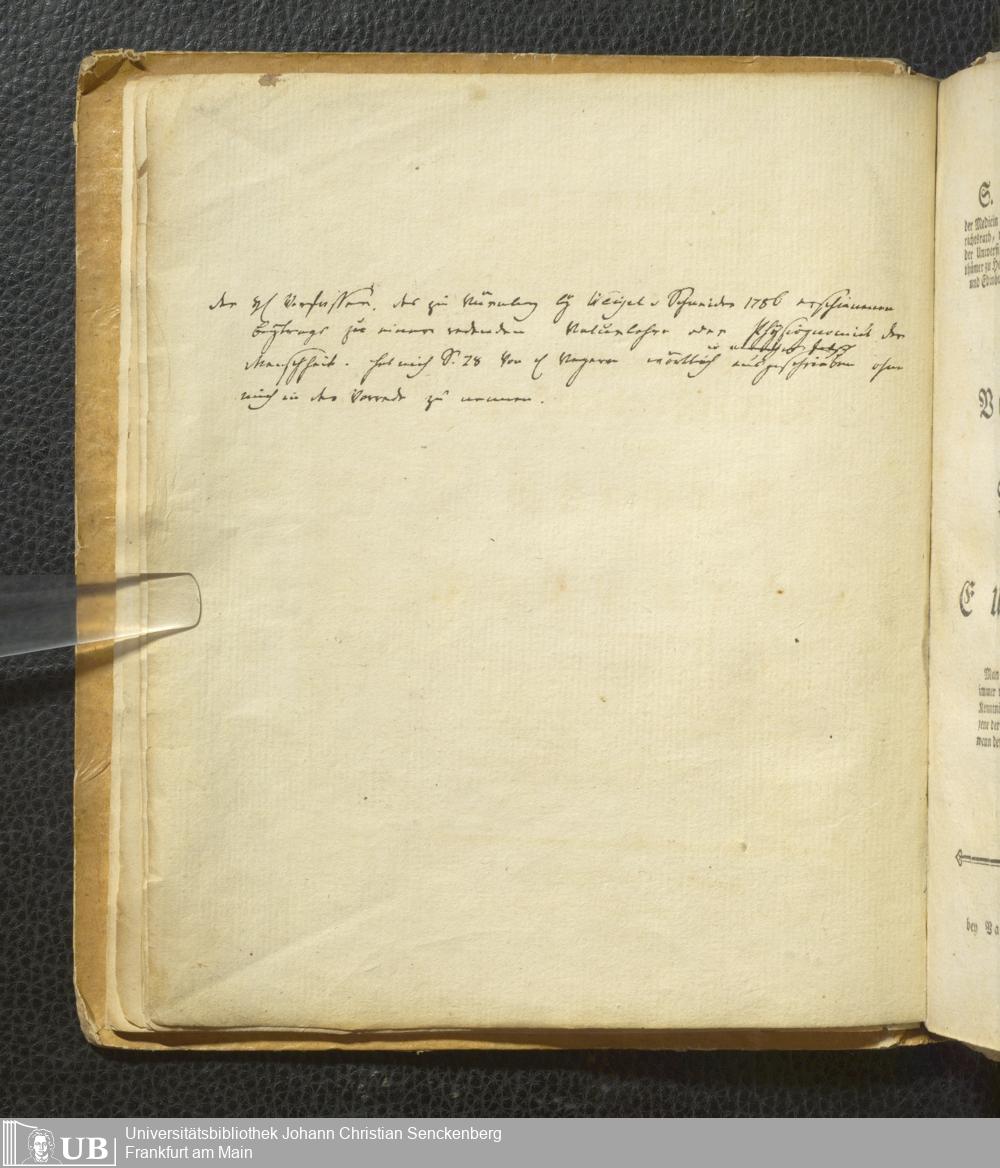 der Verfasser, des zu Nürnberg bey Weigel u Schneider 1786 erschienenen
Beytrags zu einer redenden Naturlehre oder Physiognomik der
Menschheit. hat mich S. 28 von wörtlich ausgeschrieben ohne
mich in der Vorrede zu nennen.
S.
der Medicin
richtsrath,
der Univers
thümer zu
und
V
E
Man
immer
jene der
wenn
bey
UB
Universitätsbibliothek Johann Christian Senckenberg
Frankfurt am Main